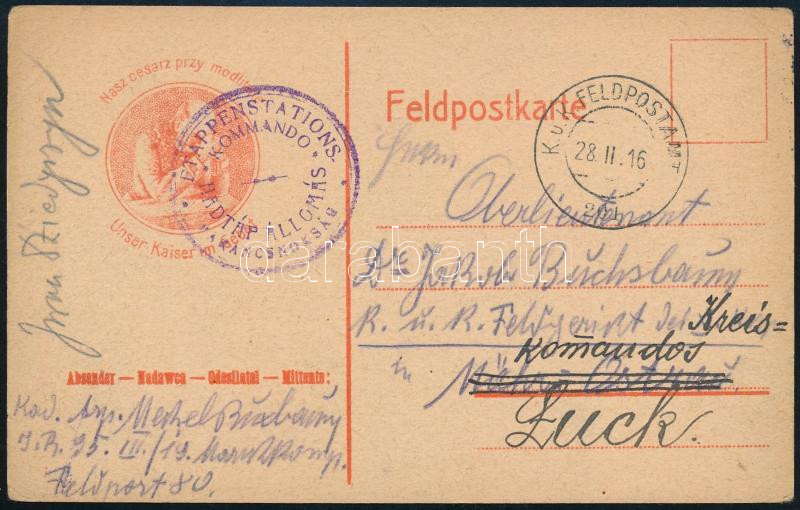 Nasz cesarz przy
Unser Kaiser im Gebet
ETAPPENSTATIONS.
KOMMANDO
HADTÁP ÁLLOMÁS
PARANCSNOKSÁG
Feldpostkarte
K.u.K. FELDPOSTAMT
28.II.16
Herrn
Oberlieutenant
Dr Jakób Buchsbaum
K. u. K. Feldgericht des Kreis-
komandos
in
Luck.
Iwan
Absender — Nadawca — Odesilatel — Mittente:
Kad. Asp. Mechel Buxbaum
I.R. 95. III./19. Marschkomp.
Feldpost 80.
darabanth